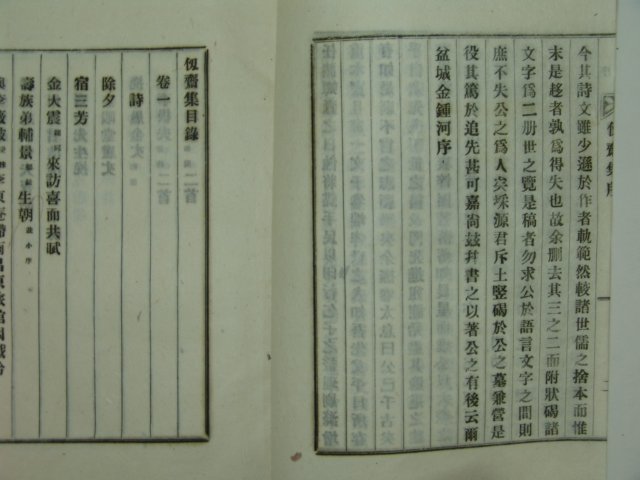 集序
今其詩文雖少遜於作者軌範然較諸世儒之捨本而惟
末是趍者孰爲得失也故余删去其三之二而附狀碣諸
文字爲二册世之覽是稿者勿求公於語言文字之間則
庶不失公之爲人矣埰源君斥土竪碣於公之墓兼營是
役其篤於追先甚可嘉尙玆幷書之以著公之有後云爾
盆城金鍾河序
齋集目錄
卷一
詩 二首
除夕
宿三芳
金大震 來訪喜而共賦
壽族弟輔景 生朝 幷小序